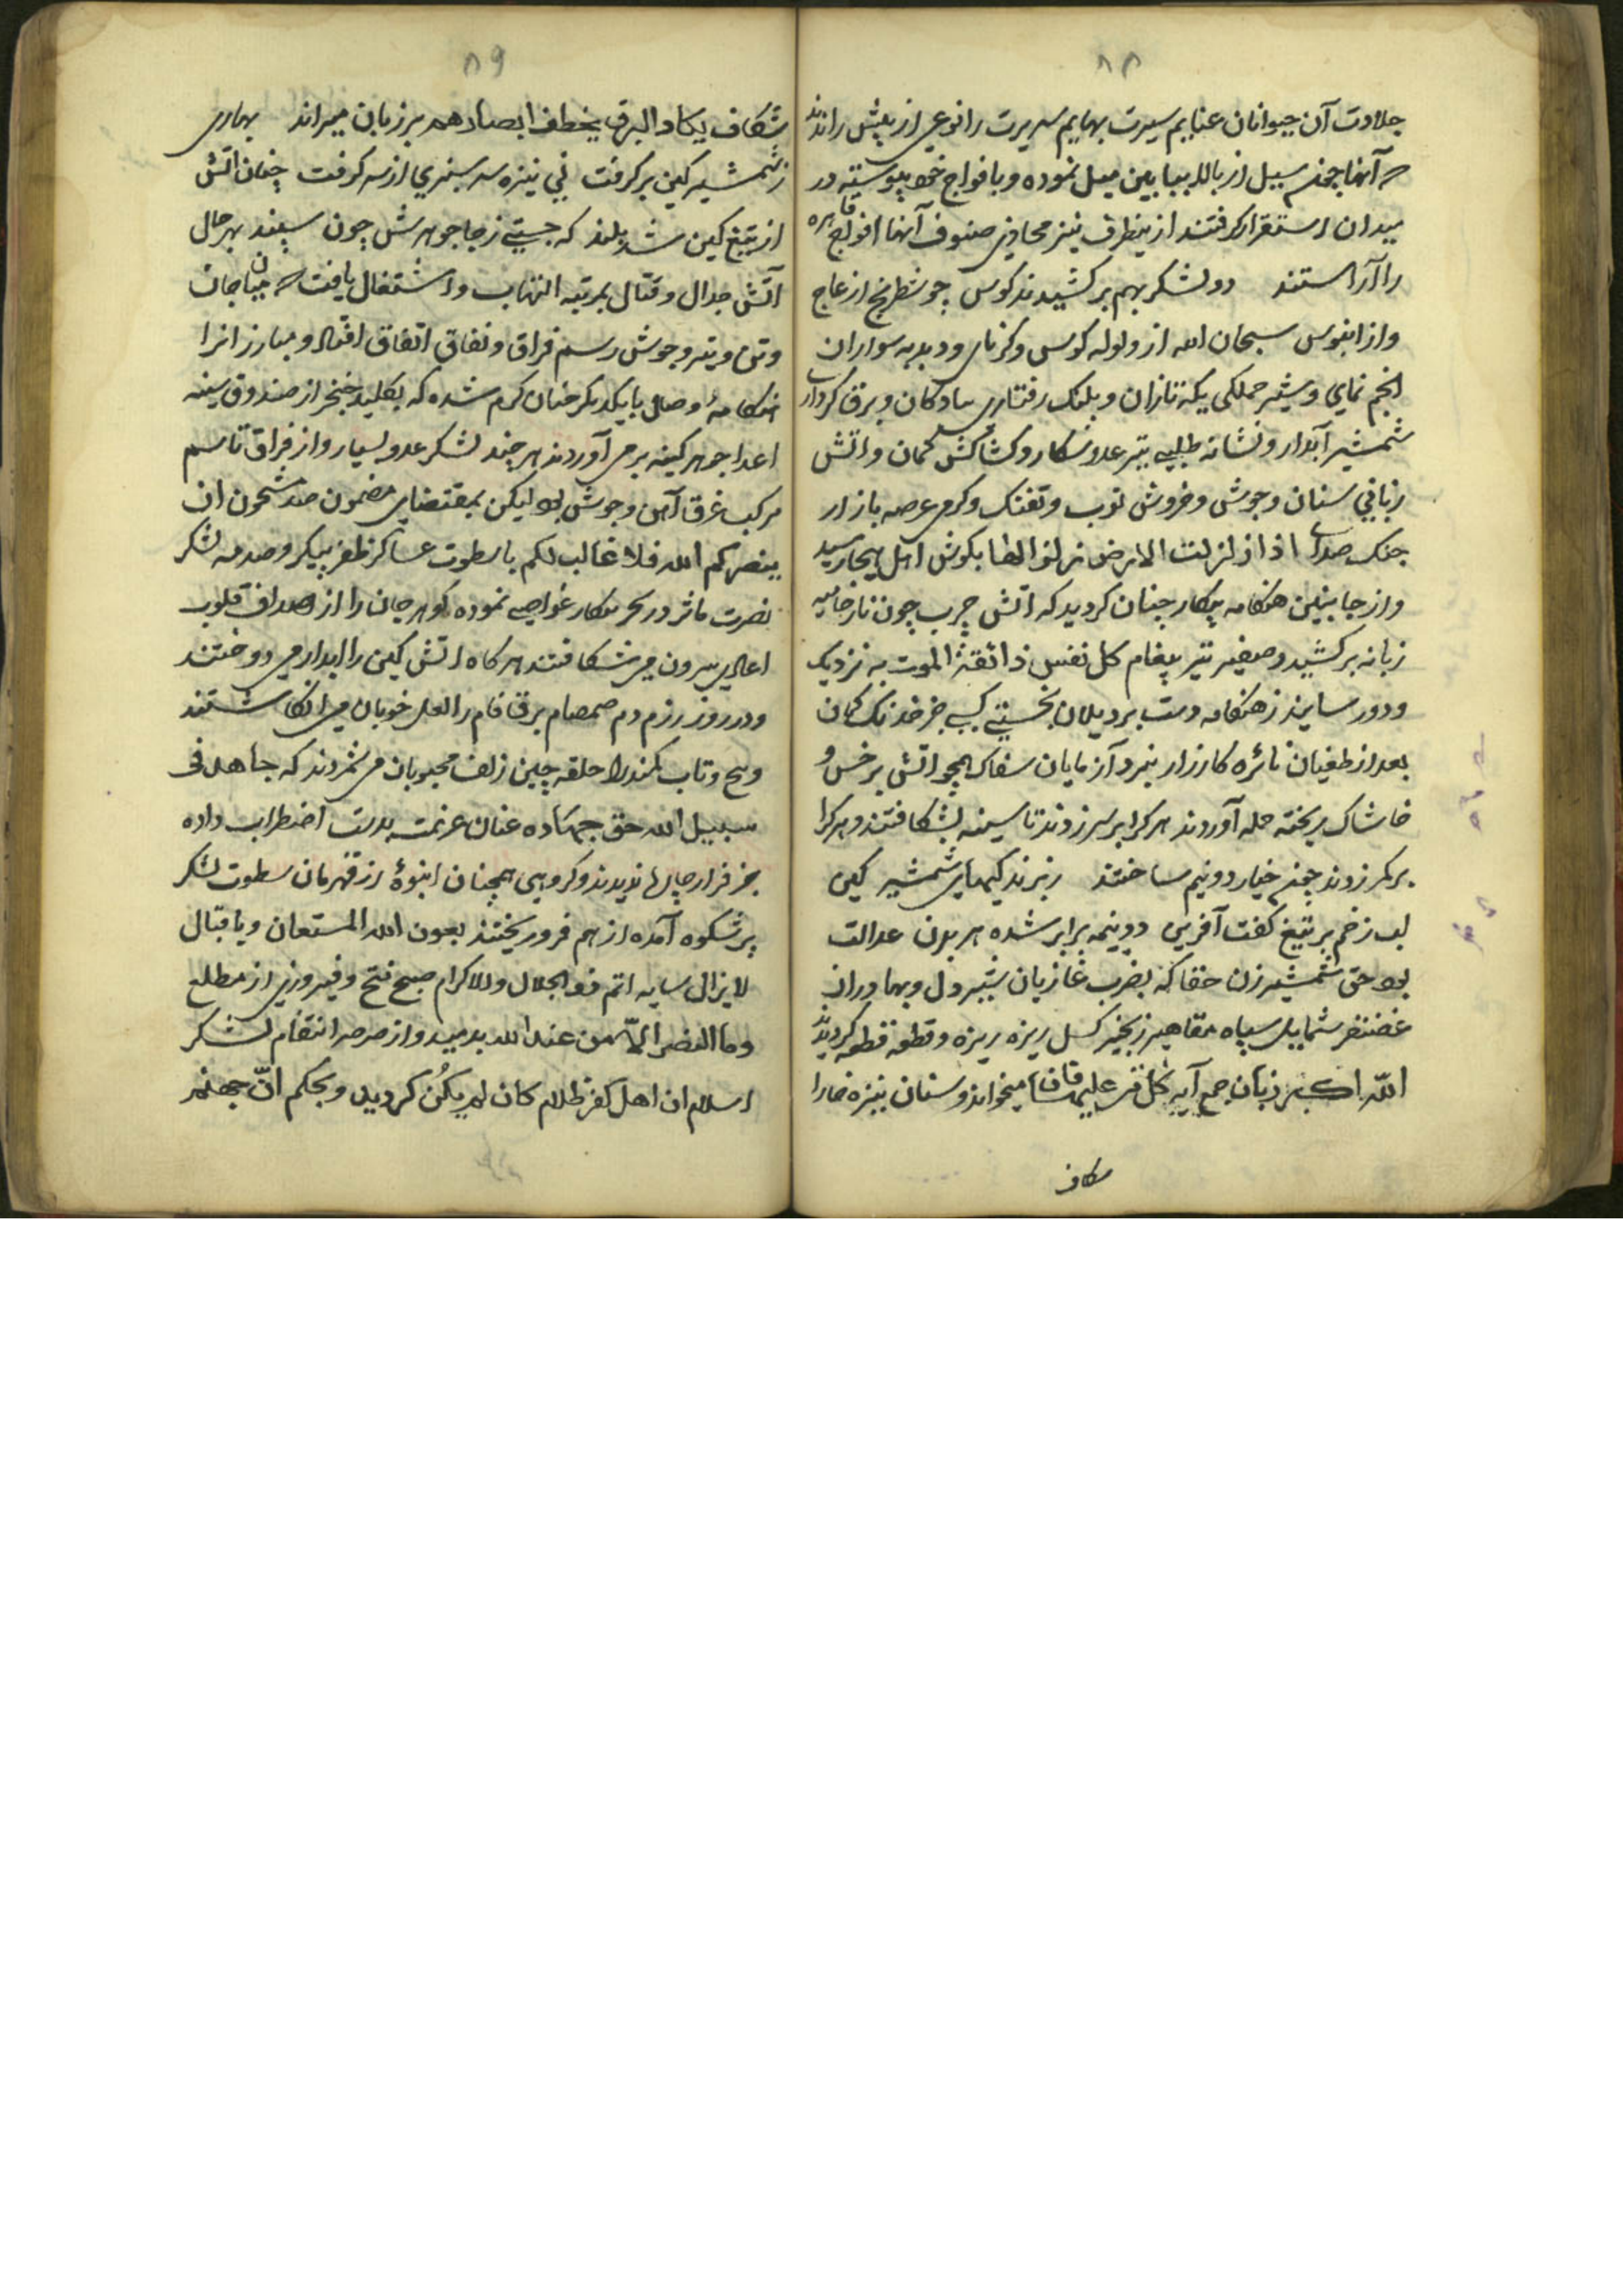 ۸۸
جلادت آن حیوانان غنایم سیرت بهایم سریرت را نوعی از پیش راندند
که آنها چون سیل از بالا بپایین میل نموده و با افواج خود پیوسته در
میدان استقرار گرفتند ازینطرف نیز محاذی صفوف آنها افواج قاهره
را آراستند دو لشکر بهم برکشیدند کوس چو شطرنج از عاج
واز ابنوس سبحان الله از ولوله کوس و کرنای و دبدبه سواران
انجم نمای و شیر حملگی یکه تازان و پلنک رفتاری پیادکان و برق کرداری
شمشیر آبدار و نشانه طلبی تیر عدو شکار و کشاکش کمان و اتش
زبانی سنان و جوش و خروش توپ و تفنک و کرمی عرصه بازار
جنک صدای اذا زلزلت الارض زلزالها بکوش اهل هیجا رسید
واز جانبین هنکامه پیکار چنان کردید که اتش حرب چون نار حامیه
زبانه برکشید و صفیر تیر پیغام کل نفس ذائقة الموت به نزدیک
و دور رسانید ز هنکامه دست برد یلان نجستی کسی جز خدنک کمان
بعد از طغیان نائره کارزار نبرد آزمایان سفاک همچو اتش بر خس و
خاشاک ریخته حمله آوردند هر کرا بر سر زدند تا سینه بشکافتند و هر کرا
بر کمر زدند چون خیار دو نیم ساختند شمشیر کین
لب زخم بر تیغ کفت آفرین دو نیمه برابر شده هر بدن عدالت
بود حق شمشیر زن حقا که بضرب غازیان شیر دل و بهادران
غضنفر شمایل سپاه مقاهیر زنجیر کسل ریزه ریزه و قطعه قطعه کردیدند
الله اکبر زبان جمع آیه کل من علیها فان میخواند و سنان نیزه خارا
شکاف
۸۹
شکاف یکاد البرق یخطف ابصارهم بر زبان میراند بهاری
ز شمشیر کین بر کرفت نی نیزه سر سبزی از سر کرفت چنان اتش
از تیغ کین شد بلند که جستی ز جا جوهرش چون سپند بهر حال
آتش جدال و قتال بمرتبه التهاب و اشتعال یافت که میان جان
وتن و تیر و جوشن رسم فراق و نفاق اتفاق افتاد و مبارزانرا
هنکامهٔ وصال با یکدیکر چنان کرم شده که بکلید خنجر از صندوق سینه
اعدا جوهر کینه بر می آوردند هر چند لشکر عدو بسیار و از فراق تا سم
مرکب غرق آهن و جوشن بود لیکن بمقتضای مضمون صد مشحون ان
ینصرکم الله فلا غالب لکم با سطوت عساکر ظفر پیکر و صدمه لشکر
نصرت ماثر در بحر پیکار غواصی نموده کوهر جان را از اصداف قلوب
اعادی بیرون می شکافتند هر کاه اتش کین را ابدار می دوختند
ودر روز رزم دم صمصام برق فام را لعل خوبان می انکاشتند
وپیچ وتاب کمند را حلقه چین زلف محبوبان می شمردند که جاهد فی
سبیل الله حق جهاده عنان عزیمت بدست اضطراب داده
جز فرار چارها ندیدند و کروهی همچنان انبوهٔ از قهرمان سطوت لشکر
پر شکوه آمده از هم فرو ریختند بعون الله المستعان و باقبال
لایزال سایه اتم ذو الجلال والاکرام صبح فتح و فیروزی از مطلع
وما النصر الّا من عند الله بدمید و از صرصر انتقام لشکر
اسلام ان اهل کفر ظلام کان لم یکُن کردید و بحکم انّ جهنم